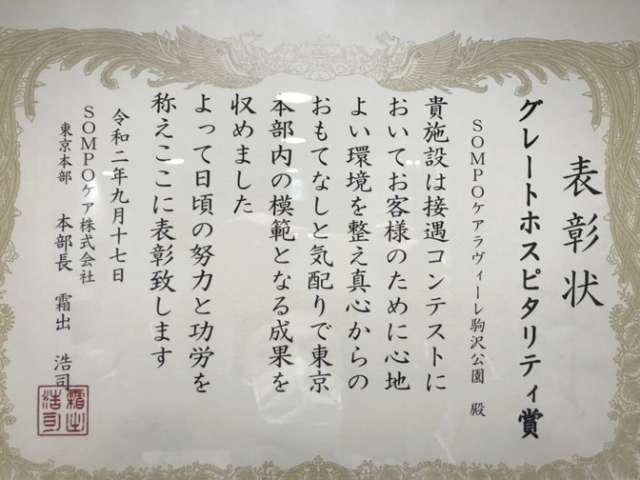 表彰状
グレートホスピタリティ賞
SOMPOケアラヴィーレ駒沢公園 殿
貴施設は接遇コンテストに
おいてお客様のために心地
よい環境を整え真心からの
おもてなしと気配りで東京
本部内の模範となる成果を
収めました
よって日頃の努力と功労を
称えここに表彰致します
令和二年九月十七日
SOMPOケア株式会社
東京本部 本部長 霜出 浩司
霜出
浩司